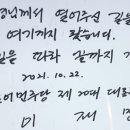 께서 열어주신 길을
여기까지 왔습니다.
을 따라 끝까지
2021. 10. 22.
민주당 제20대 대
이 재